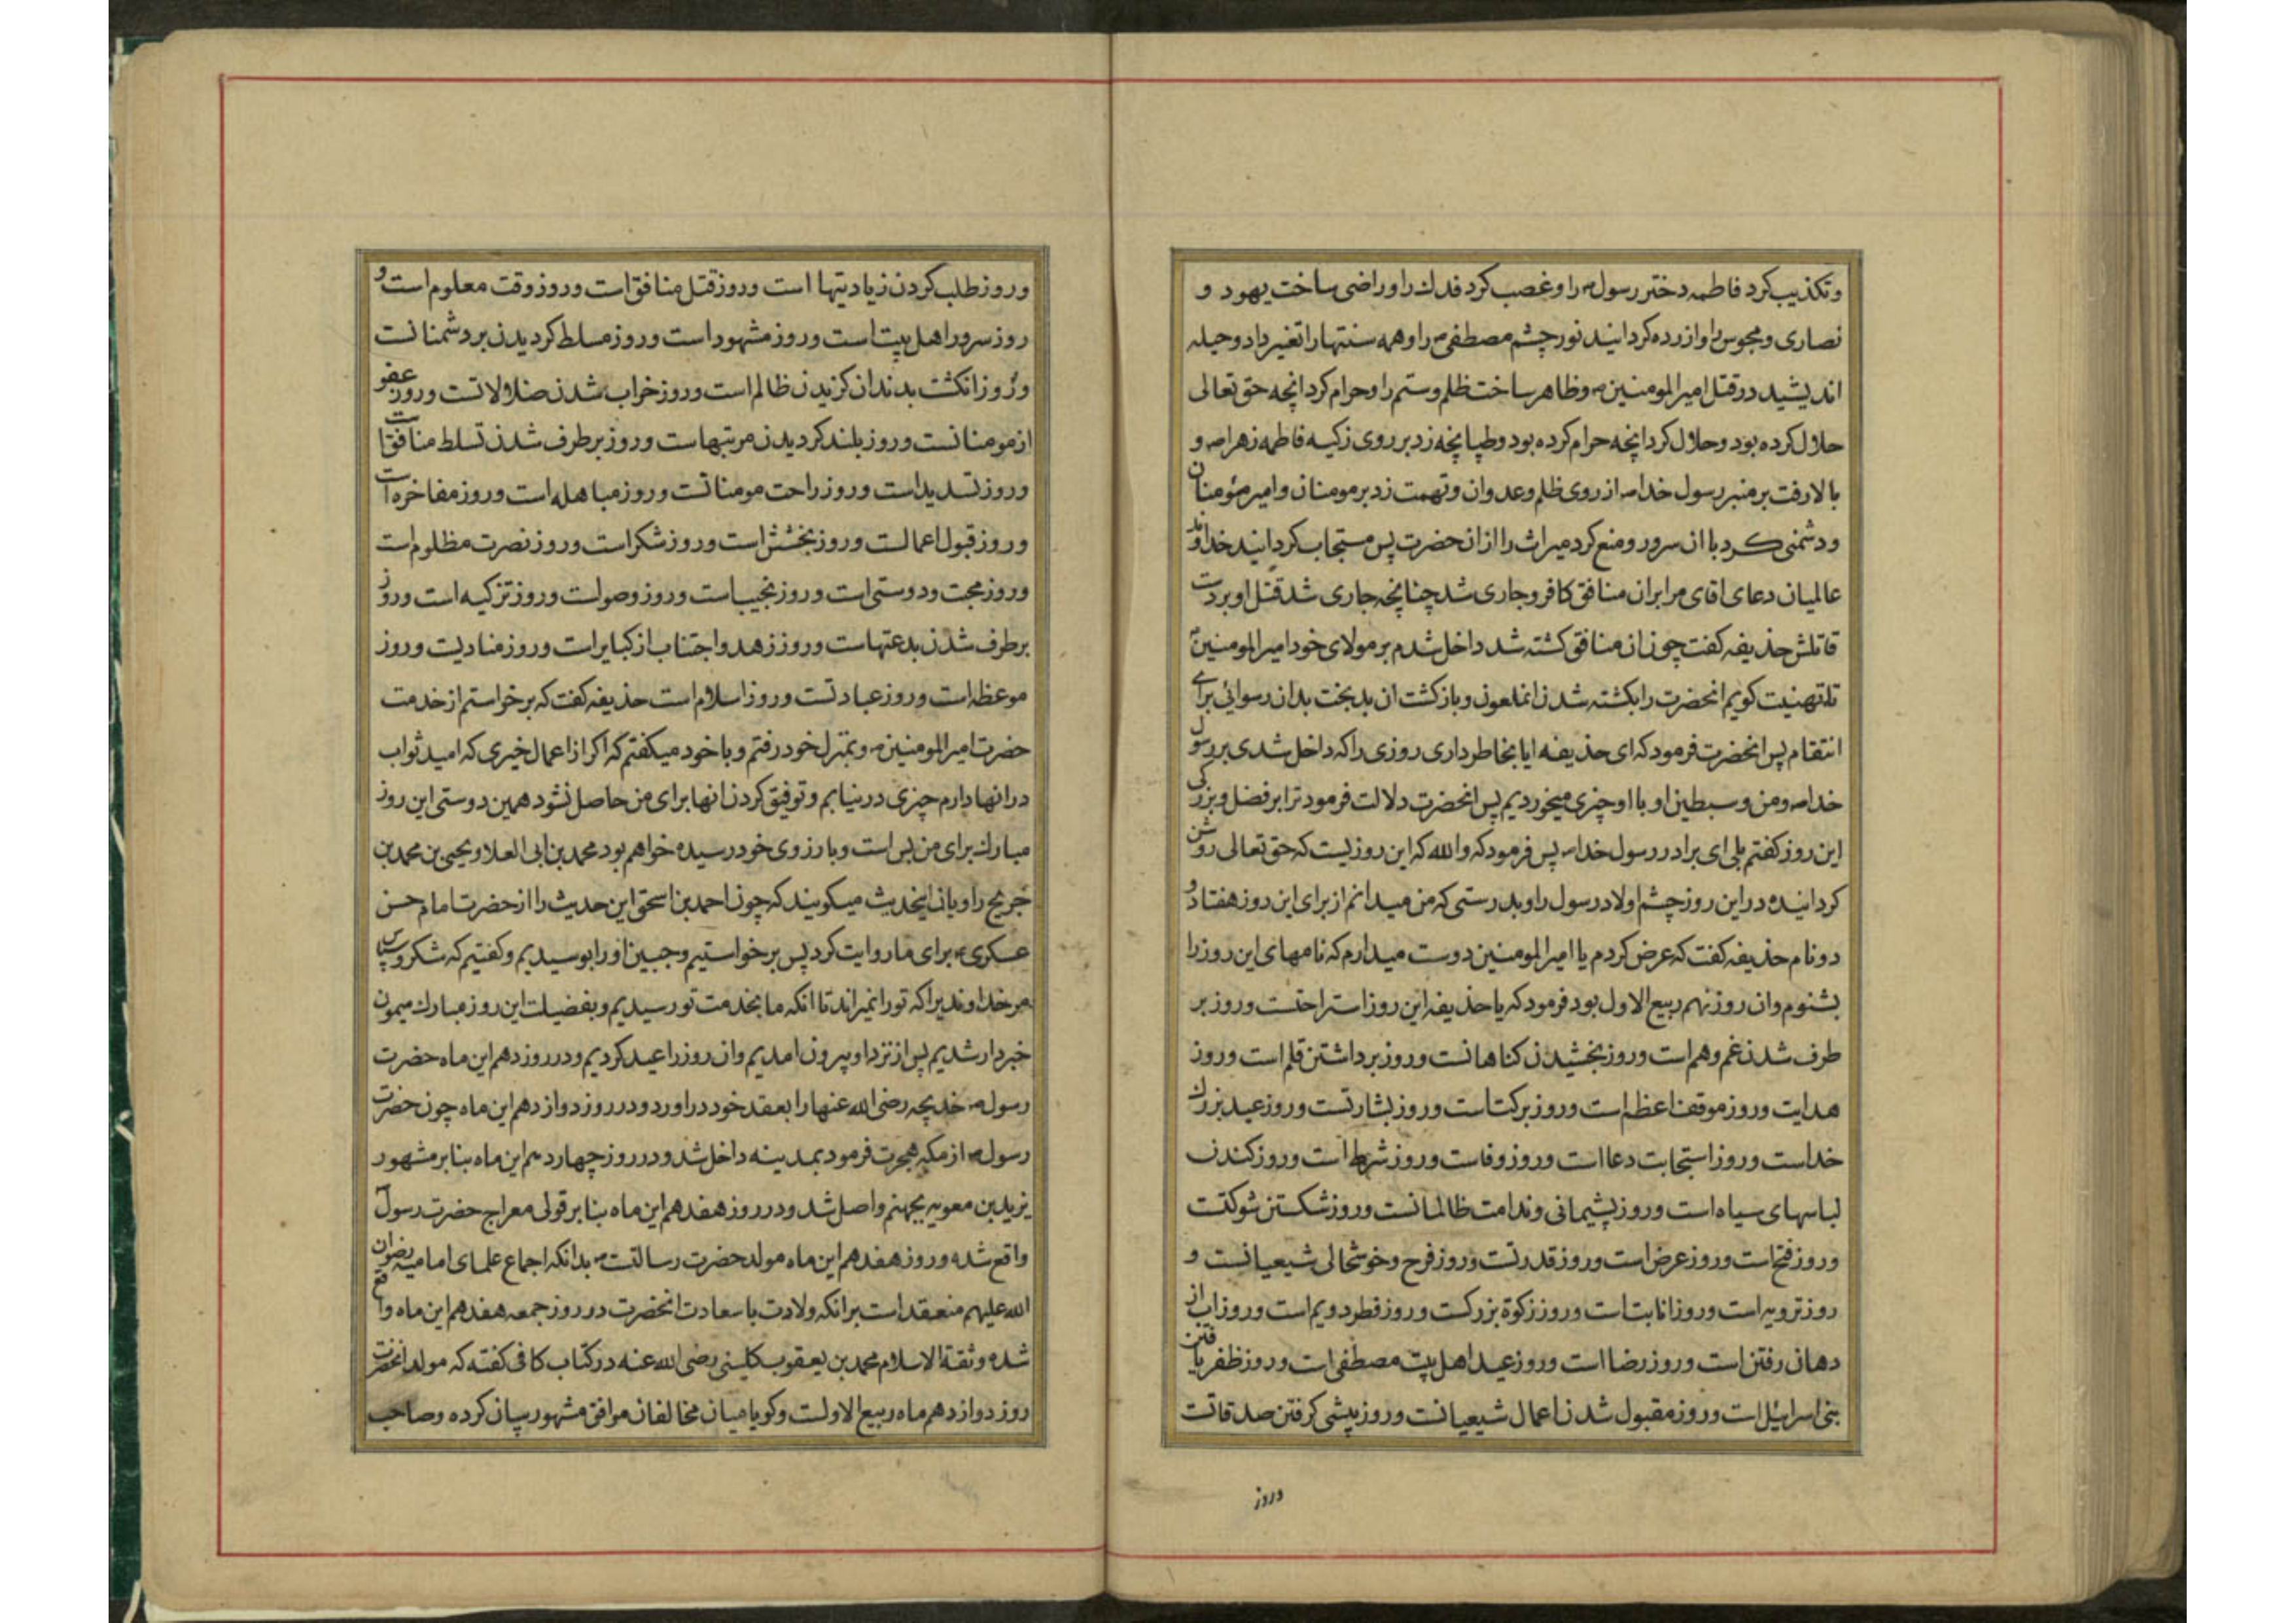 وتکذیب کرد فاطمه دختر رسول ص را وغصب کرد فدك را وراضی ساخت یهود و
نصاری ومجوس را وازرده کردانید نور چشم مصطفی ص را وهمه سنتها را تغیر داد وحیله
اندیشید در قتل امیرالمومنین ع وظاهر ساخت ظلم وستم را وحرام کرد انچه حق تعالی
حلال کرده بود وحلال کرد انچه حرام کرده بود وطپانچه زد بر روی زکیه فاطمه زهرا ص و
بالا رفت بر منبر رسول خدا ص از روی ظلم وعدوان وتهمت زد بر مومنان وامیر مؤمنان
ودشمنی کرد با ان سرور ومنع کرد میراث را از ان حضرت پس مستجاب کردانید خداوند
عالمیان دعای اقای مرا بران منافق کافر وجاری شد چنانچه جاری شد قتل او بر دست
قاتلش حذیفه کفت چون ان منافق کشته شد داخل شدم بر مولای خود امیرالمومنین ع
تا تهنیت کویم انحضرت را بکشته شدن انملعون وبازکشت ان بدبخت بدان رسوائی برای
انتقام پس انحضرت فرمود که ای حذیفه ایا بخاطر داری روزی را که داخل شدی بر رسول
خدا ص ومن وسبطین او با او چیزی میخوردیم پس انحضرت دلالت فرمود ترا بر فضل وبزرکی
این روز کفتم بلی ای برادر رسول خدا ص پس فرمود که والله که این روزیست که حق تعالی روشن
کردانیده در این روز چشم اولاد رسول را وبدرستی که من میدانم از برای این روز هفتاد و
دو نام حذیفه کفت که عرض کردم یا امیرالمومنین دوست میدارم که نامهای این روز را
بشنوم وان روز نهم ربیع الاول بود فرمود که یا حذیفه این روز استراحتست وروز بر
طرف شدن غم وهم است وروز بخشیدن کناهانست وروز برداشتن قلم است وروز
هدایت وروز موقف اعظم است وروز برکت است وروز بشارتست وروز عید بزرك
خداست وروز استجابت دعا است وروز وفاست وروز شرط است وروز کندن
لباسهای سیاه است وروز پشیمانی وندامت ظالمانست وروز شکستن شوکتست
وروز فتح است وروز عرض است وروز قدرتست وروز فرح وخوشحالی شیعیانست و
روز ترویه است وروز انابت است وروز زکوة بزرکست وروز فطر دویم است وروز اب از
دهان رفتن است وروز رضا است وروز عید اهل بیت مصطفی است وروز ظفر یافتن
بنی اسرائیل است وروز مقبول شدن اعمال شیعیانست وروز پیشی کرفتن صدقاتست
وروز
وروز طلب کردن زیادیتها است وروز قتل منافق است وروز وقت معلوم است و
روز سرور اهل بیت است وروز مشهود است وروز مسلط کردیدن بر دشمنانست
وروز انکشت بدندان کزیدن ظالم است وروز خراب شدن ضلالاتست وروز عفو
از مومنانست وروز بلند کردیدن مرتبهاست وروز برطرف شدن تسلط منافقا ست
وروز تسدید است وروز راحت مومناتست وروز مباهله است وروز مفاخره است
وروز قبول اعمالست وروز بخشش است وروز شکر است وروز نصرت مظلوم است
وروز محبت ودوستی است وروز نجیب است وروز وصولست وروز تزکیه است وروز
برطرف شدن بدعتهاست وروز زهد واجتناب از کبایر است وروز منادیست وروز
موعظه است وروز عبادتست وروز اسلام است حذیفه کفت که برخواستم از خدمت
حضرت امیرالمومنین ع وبمنزل خود رفتم وبا خود میکفتم که اکر از اعمال خیری که امید ثواب
در انها دارم چیزی در نیابم وتوفیق کردن انها برای من حاصل نشود همین دوستی این روز
مبارك برای من بس است وبارزوی خود رسیده خواهم بود محمد بن ابی العلا ویحیی بن محمد بن
جریح راویان اینحدیث میکویند که چون احمد بن اسحق این حدیث را از حضرت امام حسن
عسکری ع برای ما روایت کرد پس برخواستیم وجبین او را بوسیدیم وکفتیم که شکر وسپاس
مر خداوندیرا که تو را نمیراند تا انکه ما بخدمت تو رسیدیم وبفضیلت این روز مبارك میمون
خبردار شدیم پس از نزد او بیرون امدیم وان روز را عید کردیم ودر روز دهم این ماه حضرت
رسول ص خدیجه رضی الله عنها را بعقد خود در اورد ودر روز دوازدهم این ماه چون حضرت
رسول ص از مکه هجرت فرمود بمدینه داخل شد ودر روز چهاردهم این ماه بنابر مشهور
یزید بن معویه بجهنم واصل شد ودر روز هفدهم این ماه بنابر قولی معراج حضرت رسول ص
واقع شده وروز هفدهم این ماه مولد حضرت رسالتست ص بدانکه اجماع علمای امامیه رضوان
الله علیهم منعقد است برانکه ولادت با سعادت انحضرت در روز جمعه هفدهم این ماه واقع
شده وثقة الاسلام محمد بن یعقوب کلینی رضی الله عنه در کتاب کافی کفته که مولد انحضرت
روز دوازدهم ماه ربیع الاولست وکویا میان مخالفان موافق مشهور بیان کرده وصاحب